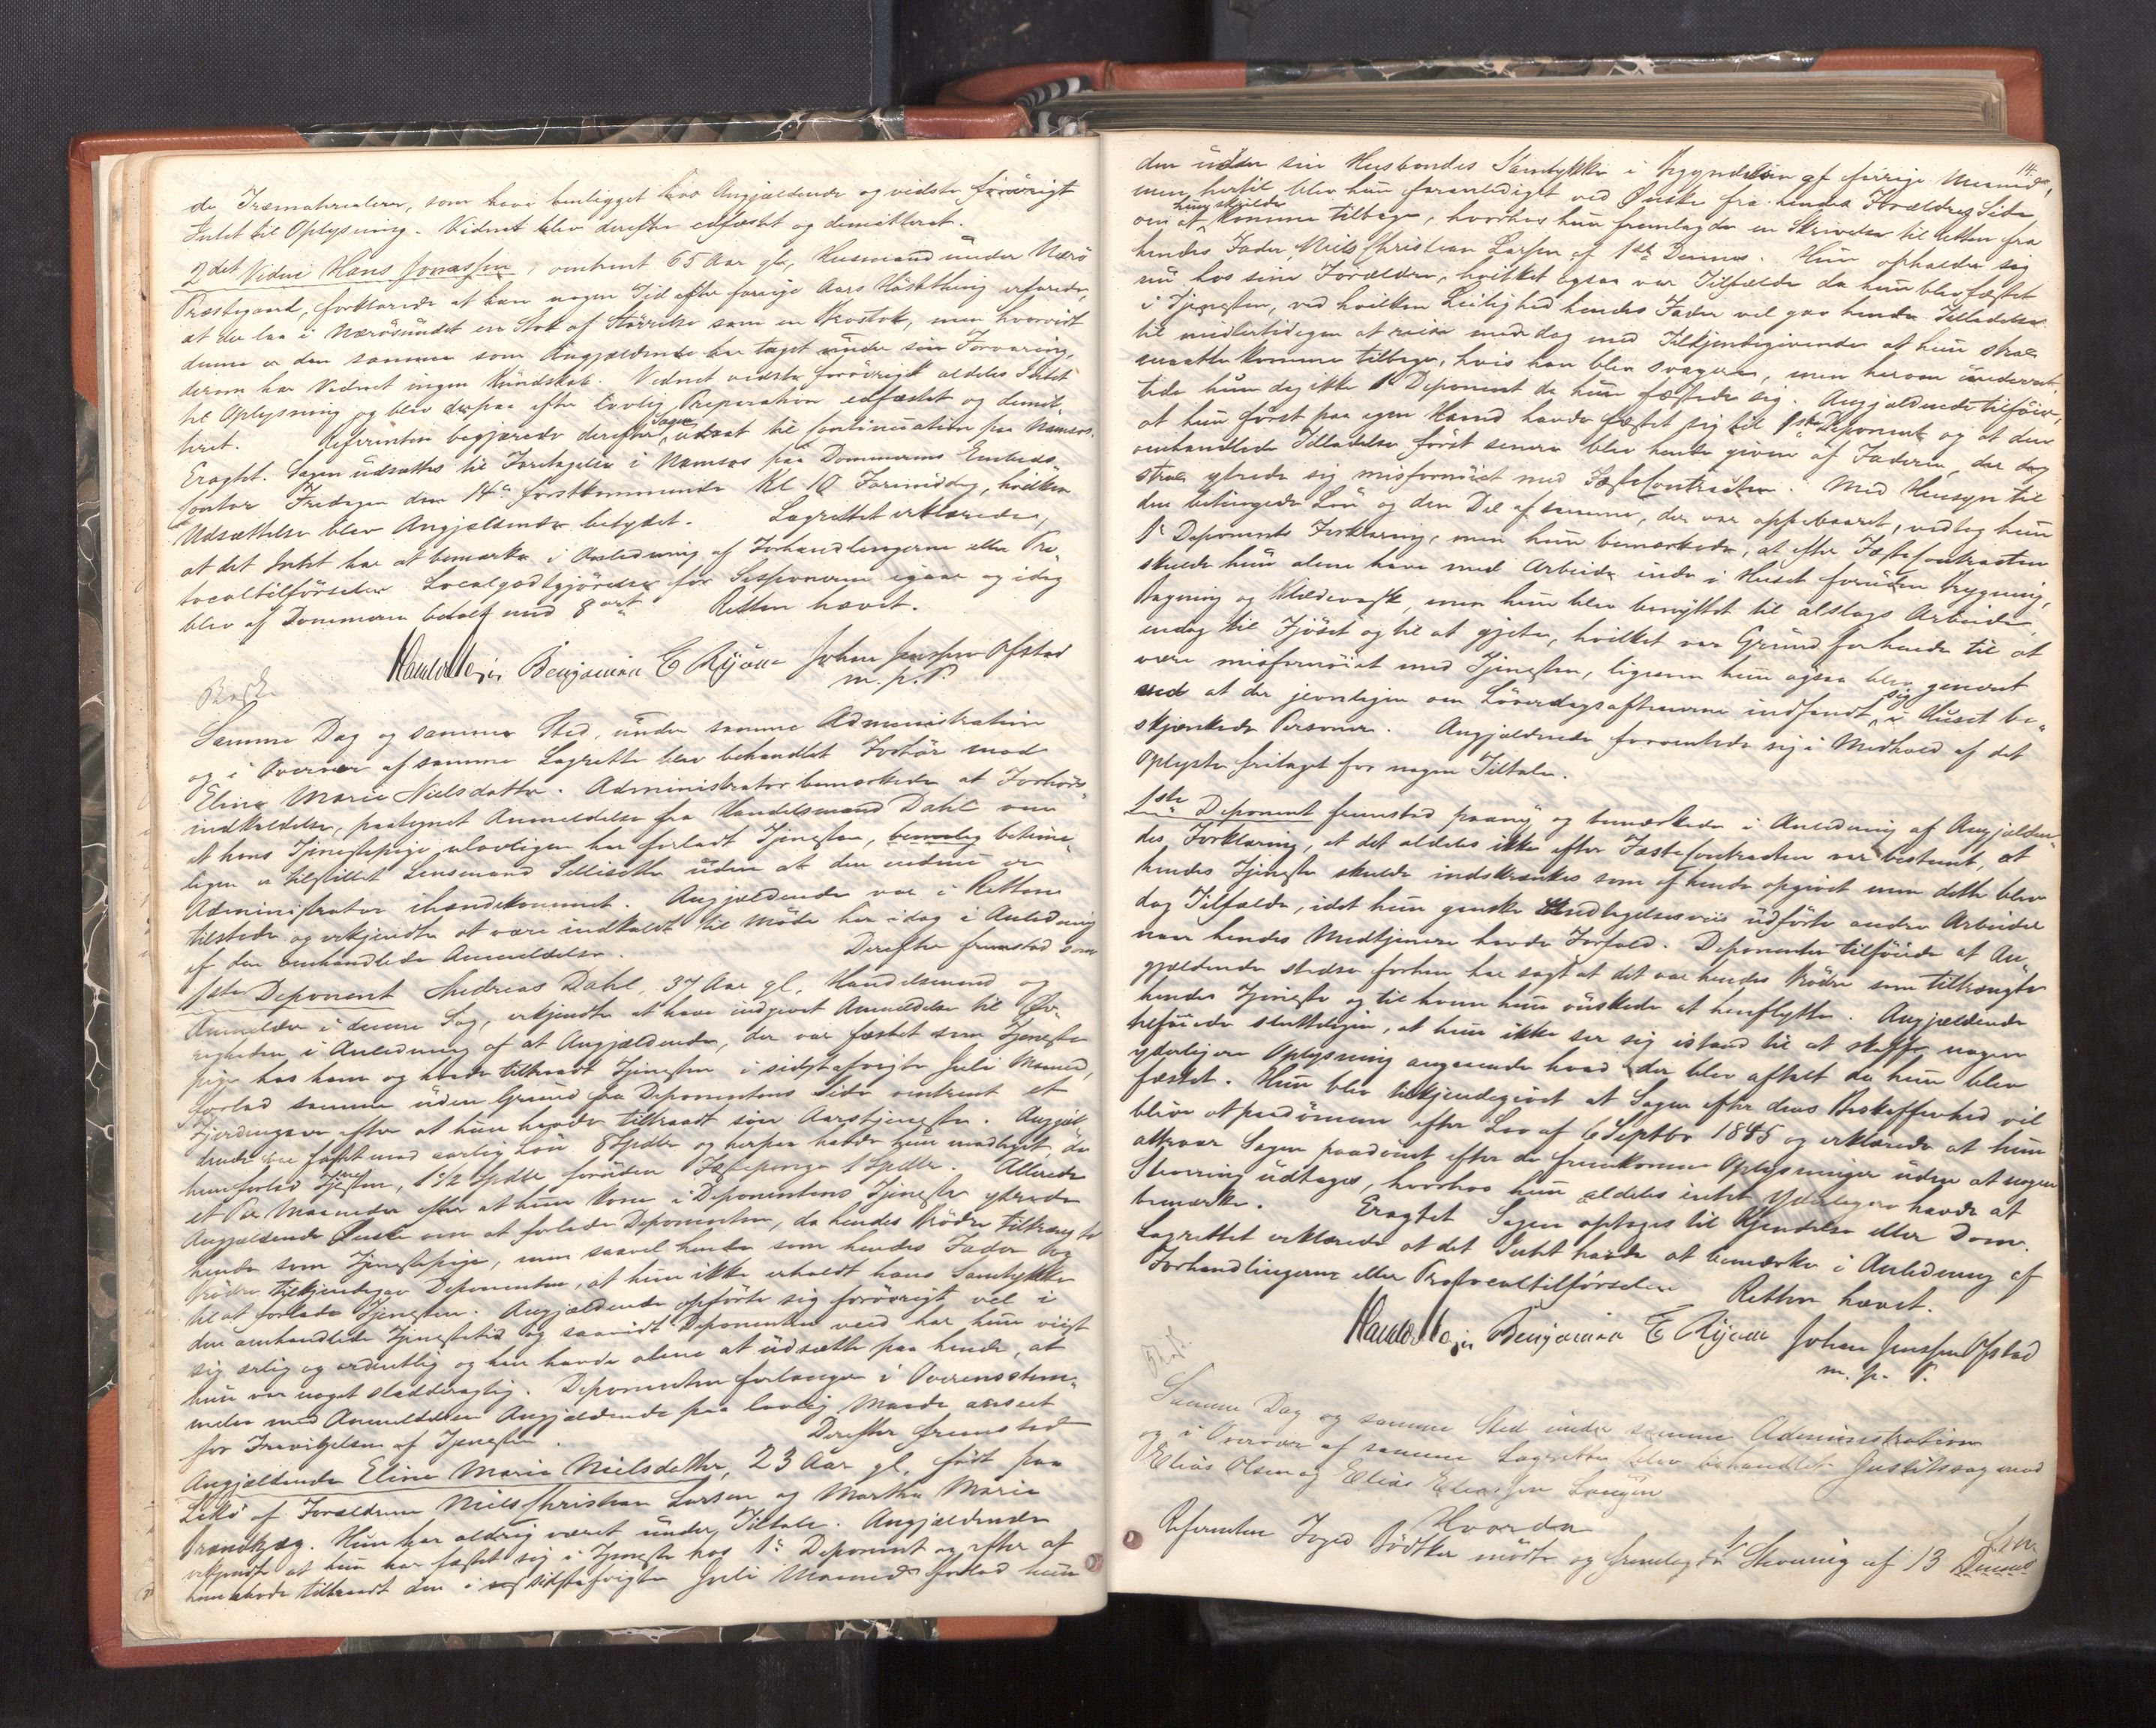 de Træmaterialier, som have henligget hos Angjældende og vidste forøvrigt
Intet til Oplysning. Vidnet blev derefter edfæstet og demitteret.
2det Vidne Hans Jonassen, omtrent 65 Aar gl., Husmand under Nærø
Præstegaard, forklarede at han nogen Tid efter forrige Aars Høstthing erfarede,
at der laa i Nærøsundet en Stok af Størrelse som en, men hvorvidt
denne er den samme som Angjældende har taget under sin Forvaring,
derom har Vidnet ingen Kundskab. Vidnet vidste forøvrigt aldeles Intet
til Oplysning og blev derpaa efter lovlig Præparation edfæstet og demit-
teret. Referenten begjærede derefter Sagen udsat til Continuation paa Namsos.
Eragtet. Sagen udsættes til Foretagelse i Namsos paa Dommerens Embeds
contor Fredagen den 14de førstkommende Kl. 10 Formiddag, hvilken
Udsættelse blev Angjældende betydet. Lagrettet erklærede,
at det Intet har at bemærke i Anledning af Forhandlingerne eller Pro-
tocoltilførselen. Localgodtgjørelse for Sessionerne igaar og idag
blev af Dommeren betalt med 8 ort. Retten hævet.
Benjamin E Ryjam Johan Jenssen Ofstad
m. p. P.
Samme Dag og samme Sted, under samme Administration
og i Overvær af samme Lagrette blev behandlet Forhør mod
Eline Marie Nielsdatter. Administrator bemærkede at Forhørs-
indkaldelse, paategnet Anmeldelse fra Handelsmand Dahl om
at hans Tjenestepige ulovligen har forladt Tjenesten, betime-
ligen er tilstillet Lensmand uden at den endnu er
Administrator ihændekommet. Angjældende var i Retten
tilstede og erkjendte at være indkaldt til Møde her idag i Anledning
af den omhandlede Anmeldelse. Derefter fremstod som
1ste Deponent Andreas Dahl, 37 Aar gl. Handelsmand og
Anmelder i denne Sag, erkjendte at have indgivet Anmeldelse til Øv-
righeden i Anledning af at Angjældende, der var fæstet som Tjeneste
pige hos ham og havde tiltraadt Tjenesten i sidstafvigte Juli Maaned,
forlod samme uden Grund fra Deponentens Side omtrent et
Fjerdingaar efter at hun havde tiltraadt sin Aarstjeneste. Angjæl-
dende var fæstet mod aarlig Løn 8 Spdlr og herpaa havde hun modtaget, da
hun forlod Tjenesten, 1 1/2 Spdlr foruden Fæstepenge 1 Spdlr. Allerede
et Par Maaneder efter at hun kom i Deponentens Tjeneste yttrede
Angjældende Ønske om at forlade Deponenten, da hendes Brødre tiltrængte
hende som Tjenestepige, men saavel hende som hendes Fader og
Brødre tilkjendegav Deponenten, at hun ikke erholdt hans Samtykke
til at forlade Tjenesten. Angjældende opførte sig forøvrigt vel i
den omhandlede Tjenestetid og saavidt Deponenten veed har hun viist
sig ærlig og ordentlig og han havde alene at udsætte paa hende, at
hun var noget sladderagtig. Deponenten forlanger i Overensstem-
melse med Anmeldelsen Angjældende paa lovlig Maade anseet
for Fravigelsen af Tjenesten. Derefter fremstod
Angjældende Eline Marie Nielsdatter, 23 Aar gl. født paa
Lekø af Forældrene Niels Christian Larsen og Martha Marie
Hun har aldrig været under Tiltale. Angjældende
erkjendte at hun har fæstet sig i Tjeneste hos 1ste Deponent og efter at
hun havde tiltraadt den i sidstafvigte Juli Maaned forlod hun
14.
den uden sin Husbondes Samtykke i Begyndelsen af forrige Maaned,
men hertil blev hun foranlediget ved Ønske fra hendes Forældres Side
om at hun skulde komme tilbage, hvorhos hun fremlagde en Skrivelse til Retten fra
hendes Fader Niels Christian Larsen af 1ste Dennes. Hun opholder sig
nu hos sine Forældre, hvilket ogsaa var Tilfælde da hun blev fæstet
i Tjenesten, ved hvilken Leilighed hendes Fader vel gav hende Tilladelse
til midlertidigen at reise med dog med Tilkjendegivende at hun strax
maatte komme tilbage, hvis han blev svagere, men herom underret-
tede hun dog ikke 1 Deponent da hun fæstede sig. Angjældende tilføiede,
at hun først paa egen Haand havde fæstet sig til 1ste Deponent og at den
omhandlede Tilladelse først senere blev hende given af Faderen, der dog
strax yttrede sig misfornøiet med Fæstecontracten. Med Hensyn til
den betingede Løn og den Del af samme, der var oppebaaret, vedtog hun
1ste Deponents Forklaring, men hun bemærkede, at efter Fæstecontracten
skulde hun alene have med Arbeide inde i Huset foruden Brygning,
Bagning og Klædevask, men hun blev benyttet til alslags Arbeide,
endog til Fjøset og til at gjete, hvilket var Grund for hende til at
være misfornøiet med Tjenesten, ligesom hun ogsaa blev generet
ved at der jevnligen om Løverdagsaftenerne indfandt sig i Huset be-
skjænkede Personer. Angjældende forventede sig i Medhold af det
Oplyste fritaget for nogen Tiltale.
1ste Deponent fremstod paany og bemærkede i Anledning af Angjælden-
des Forklaring, at det aldeles ikke efter Fæstecontracten var bestemt, at
hendes Tjeneste skulde indskrænkes som af hende opgivet men dette blev
dog Tilfælde, idet hun ganske Undtagelsesvis udførte andre Arbeider
naar hendes Medtjenere havde Forfald. Deponenten tilføiede at An-
gjældende stedse forhen har sagt at det var hendes Brødre som tiltrængte
hendes Tjeneste og til hvem hun ønskede at henflytte. Angjældende
tilføiede sluttelig, at hun ikke ser sig istand til at skaffe nogen
yderligere Oplysning angaaende hvad der blev aftalt da hun blev
fæstet. Hun blev tilkjendegivet at Sagen efter dens Beskaffenhed vil
blive at paadømme efter Lov af 6 Septbr 1845 og erklærede at hun
attraaer Sagen paadømt efter de fremkomne Oplysninger uden at nogen
Stævning udtages, hvorhos hun aldeles intet Yderligere havde at
bemærke. Eragtet Sagen optages til Kjendelse eller Dom.
Lagrettet erklærede at det Intet havde at bemærke i Anledning af
Forhandlingerne eller Protocoltilførselen Retten hævet.
Benjamin E Ryjam Johan Jenssen Ofstad
m. p. P.
Samme Dag og samme Sted under samme Administration
og i Overvær af samme Lagrette blev behandlet Justitssag mod
Elias Olsen og Elias Eliassen
Hvorda
Referenten Foged Bødtker mødte og fremlagde Stevning af 13